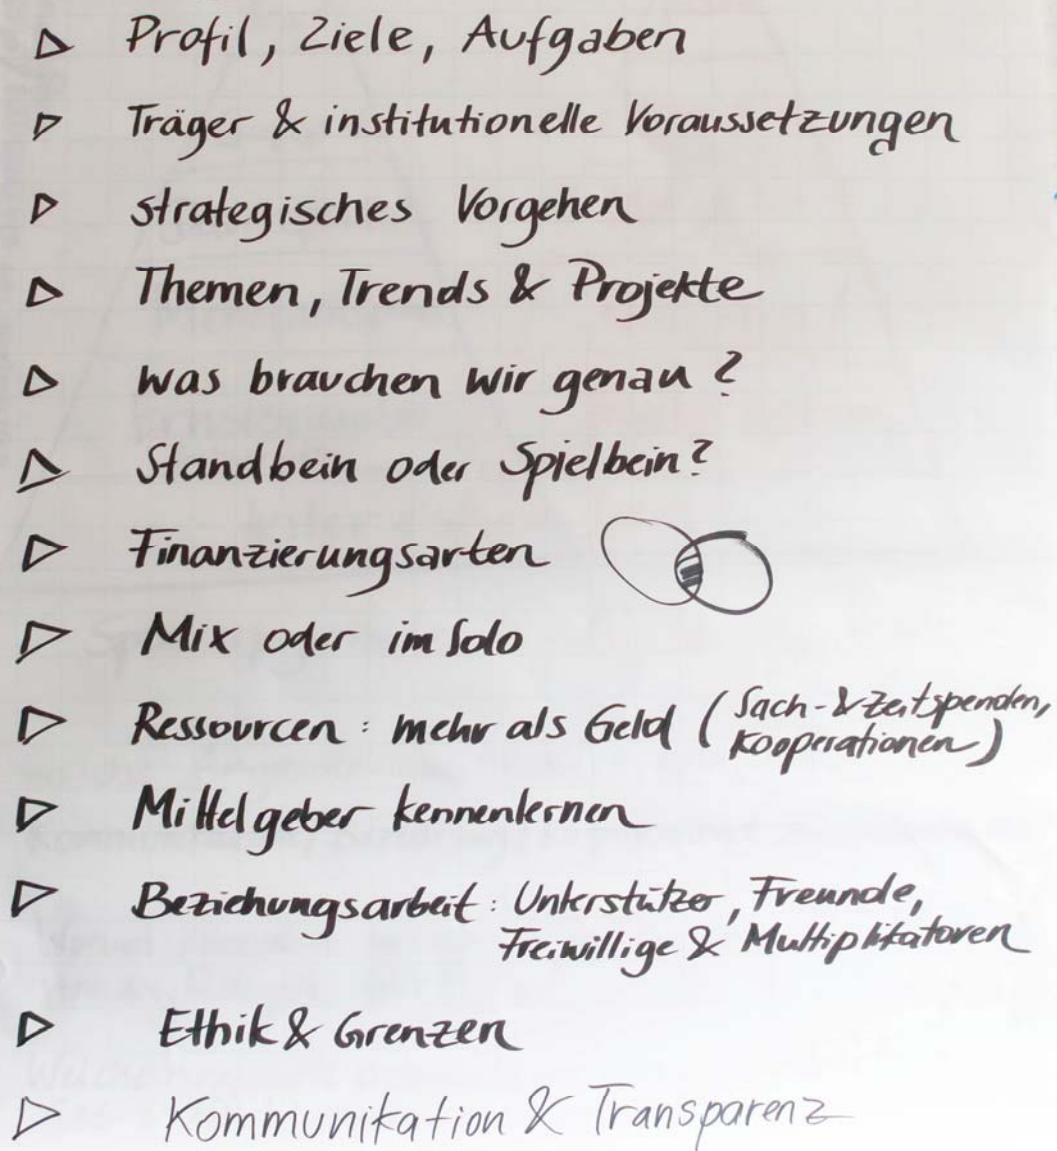 Profil, Ziele, Aufgaben
Träger & institutionelle Voraussetzungen
strategisches Vorgehen
Themen, Trends & Projekte
Was brauchen wir genau?
Standbein oder Spielbein?
Finanzierungsarten
Mix oder im Solo
Ressourcen: mehr als Geld (Sach- & Zeitspenden,
Kooperationen)
Mittelgeber kennenlernen
Beziehungsarbeit: Unterstützer, Freunde,
Freiwillige & Multiplikatoren
Ethik & Grenzen
Kommunikation & Transparenz